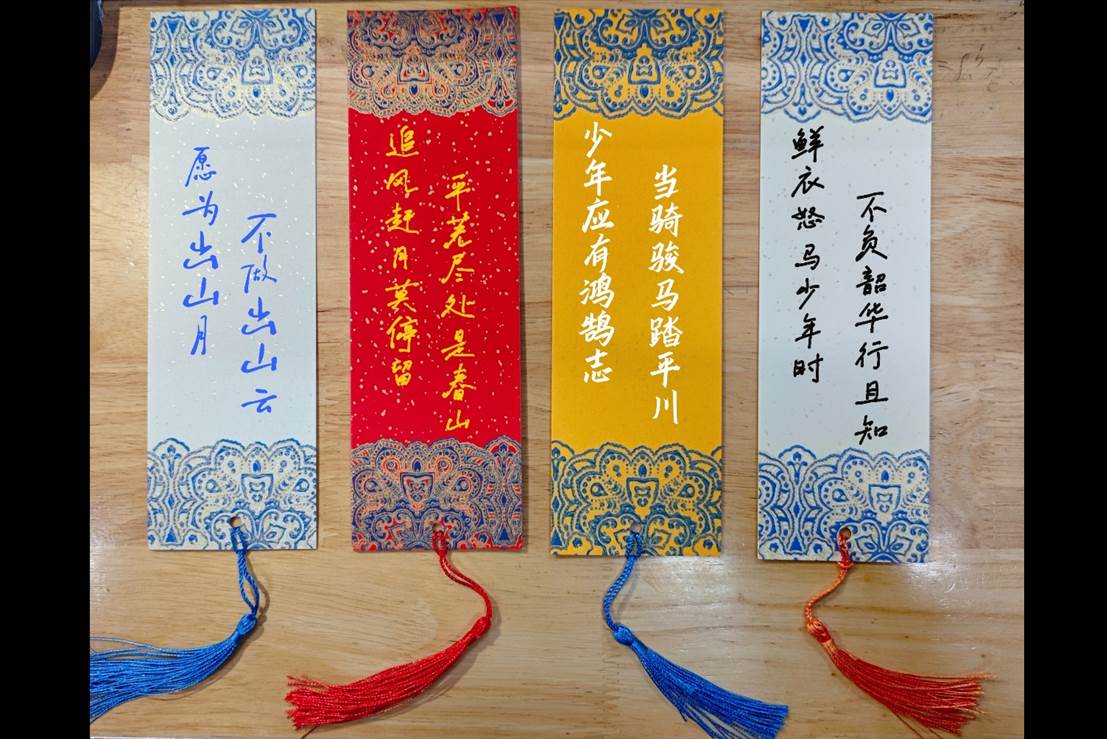 愿为出山月
不做出山云
追风赶月莫停留
平芜尽处是春山
少年应有鸿鹄志
当骑骏马踏平川
鲜衣怒马少年时
不负韶华行且知